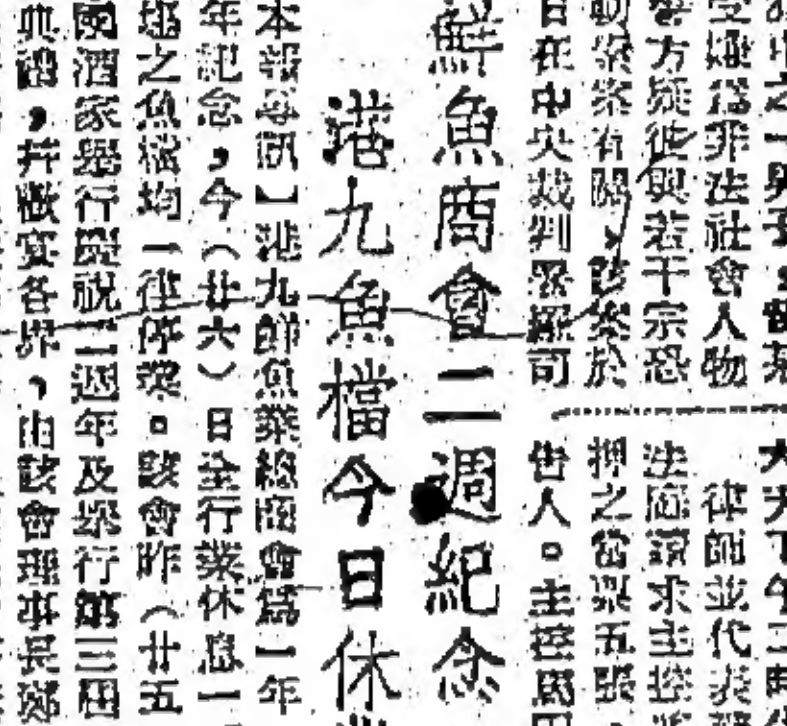 之一男子
受嫌為非法社會人物
警方疑彼與若干宗恐
有關，該案於
日在中央裁判署羅司
大天下午二時
律師並代表
法庭請求主控
押之當票五張
告人。主控
鮮魚商會二週紀念
港九魚檔今日休業
本報專訊】港九鮮魚業總商會為一年
年紀念，今（廿六）日全行業休息一
之魚檔均一律停業。該會昨（廿五
國酒家舉行慶祝二週年及舉行第三屆
典禮，并歡宴各界，由該會理事長鄧